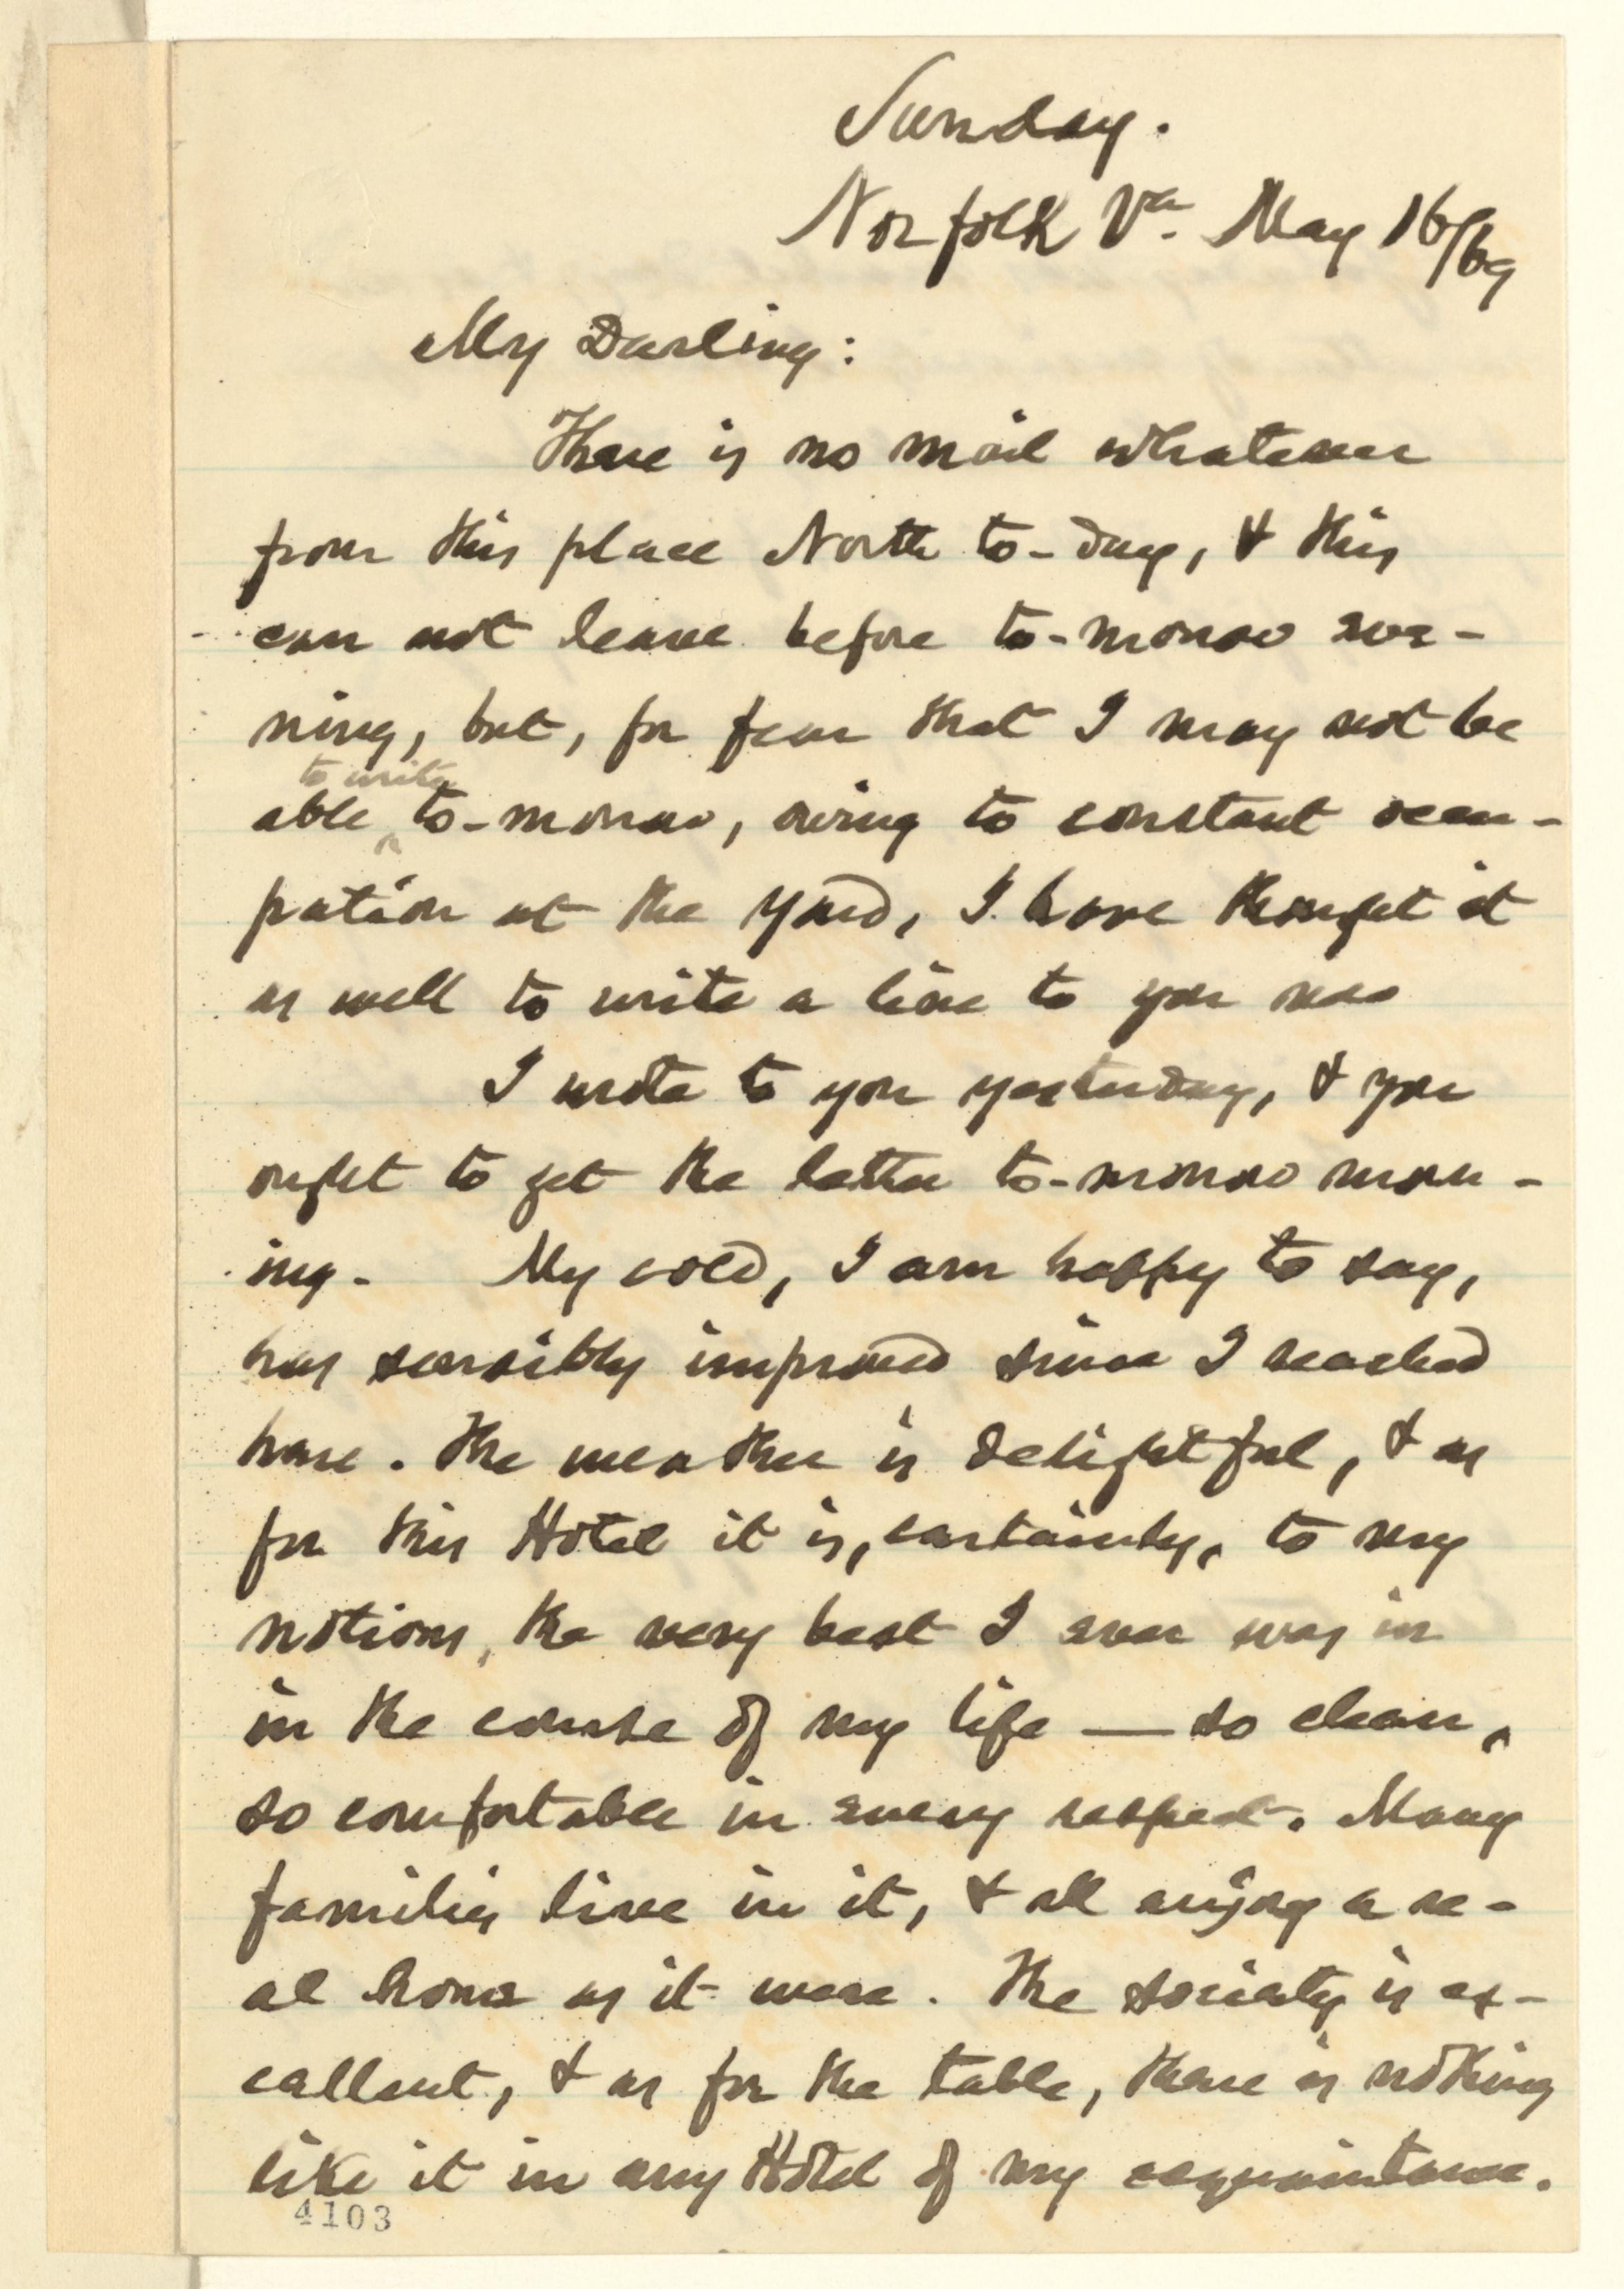 Sunday.
Norfolk Va. May 16/69
My Darling:
There is no mail whatever
from this place North to-day, & this
can not leave before to-morrow eve-
ning, but, for fear that I may not be
to write
able ^ to-morrow, owing to constant occu-
pation at the Yard, I have thought it
as well to write a line to you now
I wrote to you yesterday, & you
ought to get the letter to-morrow morn-
ing. My cold, I am happy to say,
has sensibly improved since I reached
here. The weather is delightful, & as
for this Hotel it is, certainly, to my
notions, the very best I ever was in
in the course of my life — so clean,
so comfortable in every respect. Many
families live in it, & all enjoy a re-
al home as it were. The society is ex-
cellent, & as for the table, there is nothing
like it in any Hotel of my acquaintance.
4103